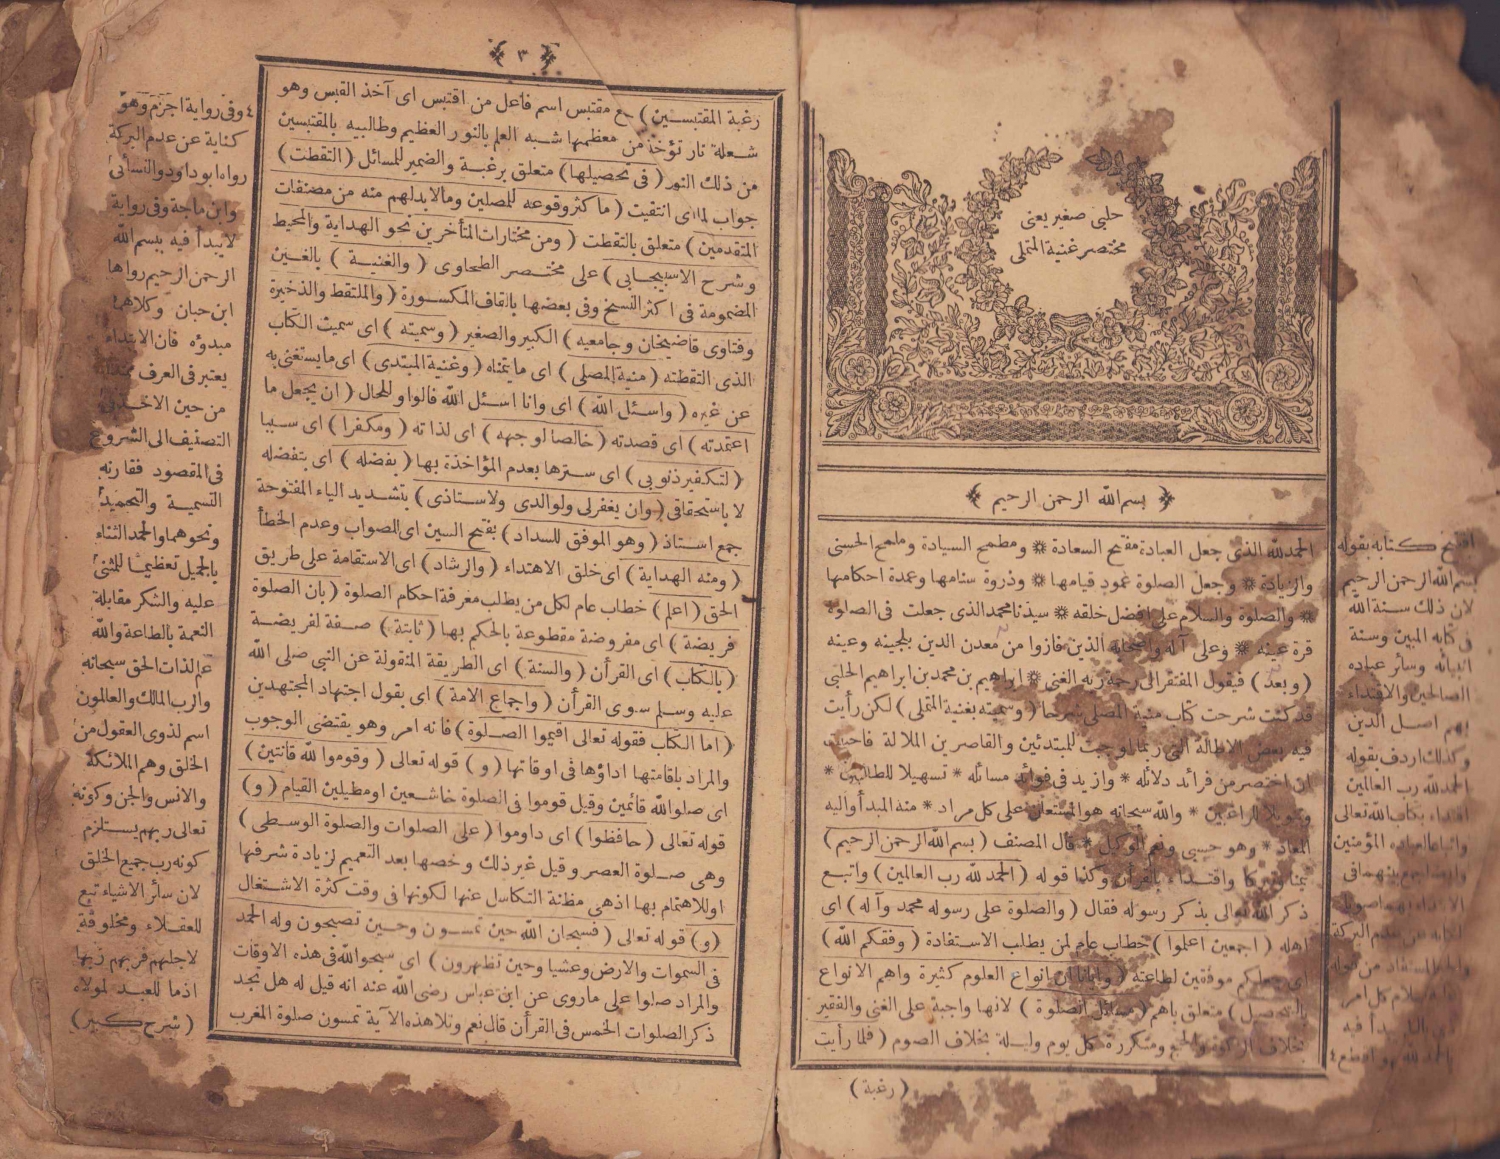 حلبى صغير يعنى
مختصر غنية المتملى
بسم الله الرحمن الرحيم
الحمد لله الذى جعل العبادة مفتح السعادة * ومطمح السيادة وملمح الحسنى
والزيادة * وجعل الصلوة عمود قيامها * وذروة سنامها وعمدة احكامها
* والصلوة والسلام على افضل خلقه * سيدنا محمد الذى جعلت فى الصلوة
قرة عينه * وعلى آله واصحابه الذين فازوا من معدن الدين بلجينه وعينه
(وبعد) فيقول المفتقر الى رحمة ربه الغنى * ابراهيم بن محمد بن ابراهيم الحلبى
قد كنت شرحت كتاب منية المصلى شرحا (وسميته بغنية المتملى) لكن رأيت
فيه بعض الاطالة التى ربما اوجبت للمبتدئين والقاصرين الملالة فاحببت
ان اختصر من فرائد دلائله * وازيد فى فوائد مسائله * تسهيلا للطالبين *
للراغبين * والله سبحانه هو المستعان على كل مراد * منه المبدأ واليه
المعاد * وهو حسبى ونعم الوكيل * قال المصنف (بسم الله الرحمن الرحيم)
تيمنا وتبركا واقتداء بالقرآن وكذا قوله (الحمد لله رب العالمين) واتبع
ذكر الله تعالى بذكر رسوله فقال (والصلوة على رسوله محمد وآله) اى
اهله (اجمعين اعلموا) خطاب عام لمن يطلب الاستفادة (وفقكم الله)
اى جعلكم موفقين لطاعته ان انواع العلوم كثيرة واهم الانواع
بالتحصيل) متعلق باهم (مسائل الصلوة) لانها واجبة على الغنى والفقير
بخلاف الزكوة والحج ومتكررة كل يوم وليلة بخلاف الصوم (فلما رأيت
(رغبة)
افتتح كتابه بقوله
بسم الله الرحمن الرحيم
لان ذلك سنة الله
فى كتابه المبين وسنة
انبيائه وسائر عباده
الصالحين والاقتداء
بهم اصل الدين
وكذلك اردف بقوله
الحمد لله رب العالمين
اقتداء بكتاب الله تعالى
المؤمنين
٣
رغبة المقتبسين) جمع مقتبس اسم فاعل من اقتبس اى آخذ القبس وهو
شعلة نار تؤخذ من معظمها شبه العلم بالنور العظيم وطالبيه بالمقتبسين
من ذلك النور (فى تحصيلها) متعلق برغبة والضمير للمسائل (التقطت)
جواب لما اى انتقيت (ما كثر وقوعه للمصلين وما لا بد لهم منه من مصنفات
المتقدمين) متعلق بالتقطت (ومن مختارات المتأخرين نحو الهداية والمحيط
وشرح الاسبيجابى) على مختصر الطحاوى (والغنية) بالغين
المضمومة فى اكثر النسخ وفى بعضها بالقاف المكسورة (والملتقط والذخيرة
وفتاوى قاضيخان وجامعيه) الكبير والصغير (وسميته) اى سميت الكتاب
الذى التقطته (منية المصلى) اى ما يتمناه (وغنية المبتدى) اى ما يستغنى به
عن غيره (واسئل الله) اى وانا اسئل الله فالواو للحال (ان يجعل ما
اعتمدته) اى قصدته (خالصا لوجهه) اى لذاته (ومكفرا) اى سببا
(لتكفير ذنوبى) اى سترها بعدم المؤاخذة بها (بفضله) اى بتفضله
لا باستحقاقى (وان يغفر لى ولوالدى ولاستاذى) بتشديد الياء المفتوحة
جمع استاذ (وهو الموفق للسداد) بفتح السين اى الصواب وعدم الخطأ
(ومنه الهداية) اى خلق الاهتداء (والرشاد) اى الاستقامة على طريق
الحق (اعلم) خطاب عام لكل من يطلب معرفة احكام الصلوة (بان الصلوة
فريضة) اى مفروضة مقطوعة بالحكم بها (ثابتة) صفة لفريضة
(بالكتاب) اى القرأن (والسنة) اى الطريقة المنقولة عن النبى صلى الله
عليه وسلم سوى القرأن (واجماع الامة) اى بقول اجتهاد المجتهدين
(اما الكتاب فقوله تعالى اقيموا الصلوة) فانه امر وهو يقتضى الوجوب
والمراد باقامتها اداؤها فى اوقاتها (و) قوله تعالى (وقوموا لله قانتين)
اى صلوا لله قائمين وقيل قوموا فى الصلوة خاشعين او مطيلين القيام (و)
قوله تعالى (حافظوا) اى داوموا (على الصلوات والصلوة الوسطى)
وهى صلوة العصر وقيل غير ذلك وخصها بعد التعميم لزيادة شرفها
او للاهتمام بها اذ هى مظنة التكاسل عنها لكونها فى وقت كثرة الاشتغال
(و) قوله تعالى (فسبحان الله حين تمسون وحين تصبحون وله الحمد
فى السموات والارض وعشيا وحين تظهرون) اى سبحوا الله فى هذه الاوقات
والمراد صلوا على ما روى عن ابن عباس رضى الله عنه انه قيل له هل تجد
ذكر الصلوات الخمس فى القرأن قال نعم وتلا هذه الآية تمسون صلوة المغرب
٤ وفى رواية اجزم وهو
كناية عن عدم البركة
رواه ابو داود والنسائى
وابن ماجة وفى رواية
لا يبدأ فيه ببسم الله
الرحمن الرحيم رواها
ابن حبان وكلاهما
مبدؤه فان الابتداء
يعتبر فى العرف ممتدا
من حين الاخذ فى
التصنيف الى الشروع
فى المقصود فقارنه
التسمية والتحميد
ونحوهما والحمد الثناء
بالجميل تعظيما للمثنى
عليه والشكر مقابلة
النعمة بالطاعة والله
علم الذات الحق سبحانه
والرب المالك والعالمون
اسم لذوى العقول من
الخلق وهم الملائكة
والانس والجن وكونه
تعالى ربهم يستلزم
كونه رب جميع الخلق
لان سائر الاشياء تبع
للعقلاء ومخلوقة
لاجلهم فربهم ربها
اذ ما للعبد لمولاه
(شرح كبير)